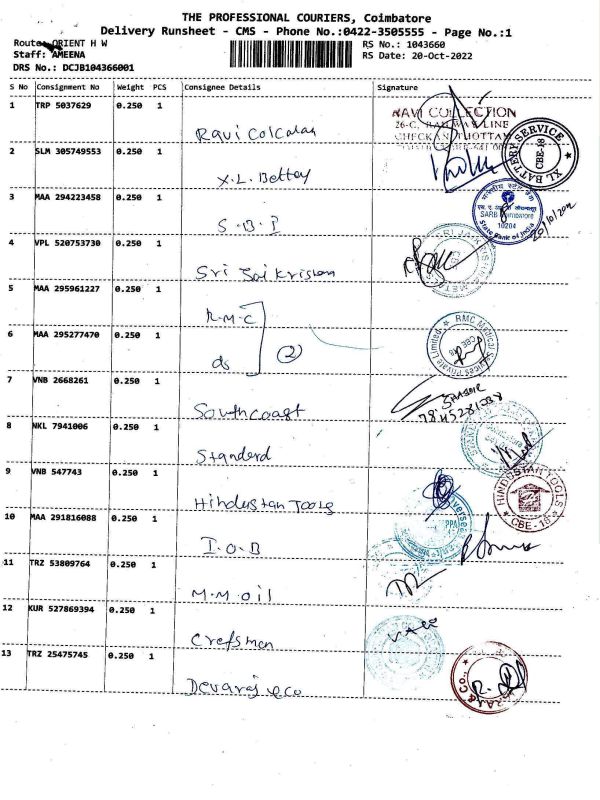 THE PROFESSIONAL COURIERS, Coimbatore
Delivery Runsheet - CMS - Phone No.:0422-3505555 - Page No.:1
Route: ORIENT H W
RS No.: 1043660
Staff: AMEENA
RS Date: 20-Oct-2022
DRS No.: DCJB104366001
S No Consignment No Weight PCS Consignee Details Signature
1 TRP 5037629 0.250 1
RAVI COLLECTION
26-C,
Ravi
XL BATTERY SERVICE CBE-18
2 SLM 305749553 0.250 1
X.L. Battery
3 MAA 294223458 0.250 1
S.B.I
SARB Coimbatore 10204 State Bank of India
20/10/202
4 VPL 520753730 0.250 1
Sri Jai Krishan
5 MAA 295961227 0.250 1
R.M.C
6 MAA 295277470 0.250 1
do (2)
RMC Medical Services Private Limited CBE
7 VNB 2668261 0.250 1
Southcoast
8 NKL 7941006 0.250 1
Standerd
9 VNB 547743 0.250 1
Hindustan Tools
HINDUSTAN TOOLS CBE-18
10 MAA 291816088 0.250 1
I.O.B
11 TRZ 53809764 0.250 1
M.M oil
12 KUR 527869394 0.250 1
Crefsmen
13 TRZ 25475745 0.250 1
Devaraj &co